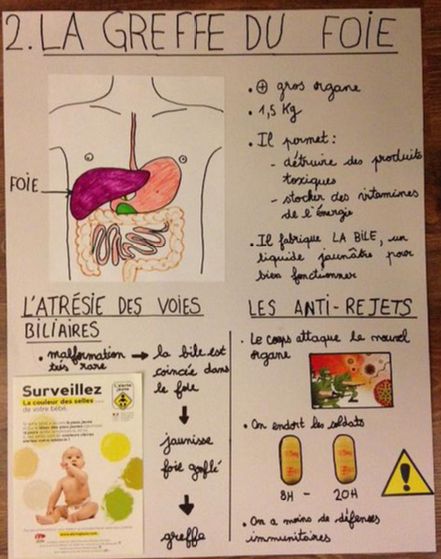 2. LA GREFFE DU FOIE
FOIE
• ⊕ gros organe
• 1,5 Kg
• Il permet :
- détruire des produits
toxiques
- stocker des vitamines
de l'énergie
• Il fabrique LA BILE, un
liquide jaunâtre pour
bien fonctionner
L'ATRÉSIE DES VOIES
BILIAIRES
• malformation → la bile est
très rare
coincée dans
le foie
jaunisse
foie gonflé
greffe
Surveillez
La couleur des selles
de votre bébé.
LES ANTI-REJETS
• Le corps attaque le nouvel
organe
• On endort les soldats
8H - 20H
• On a moins de défenses
immunitaires